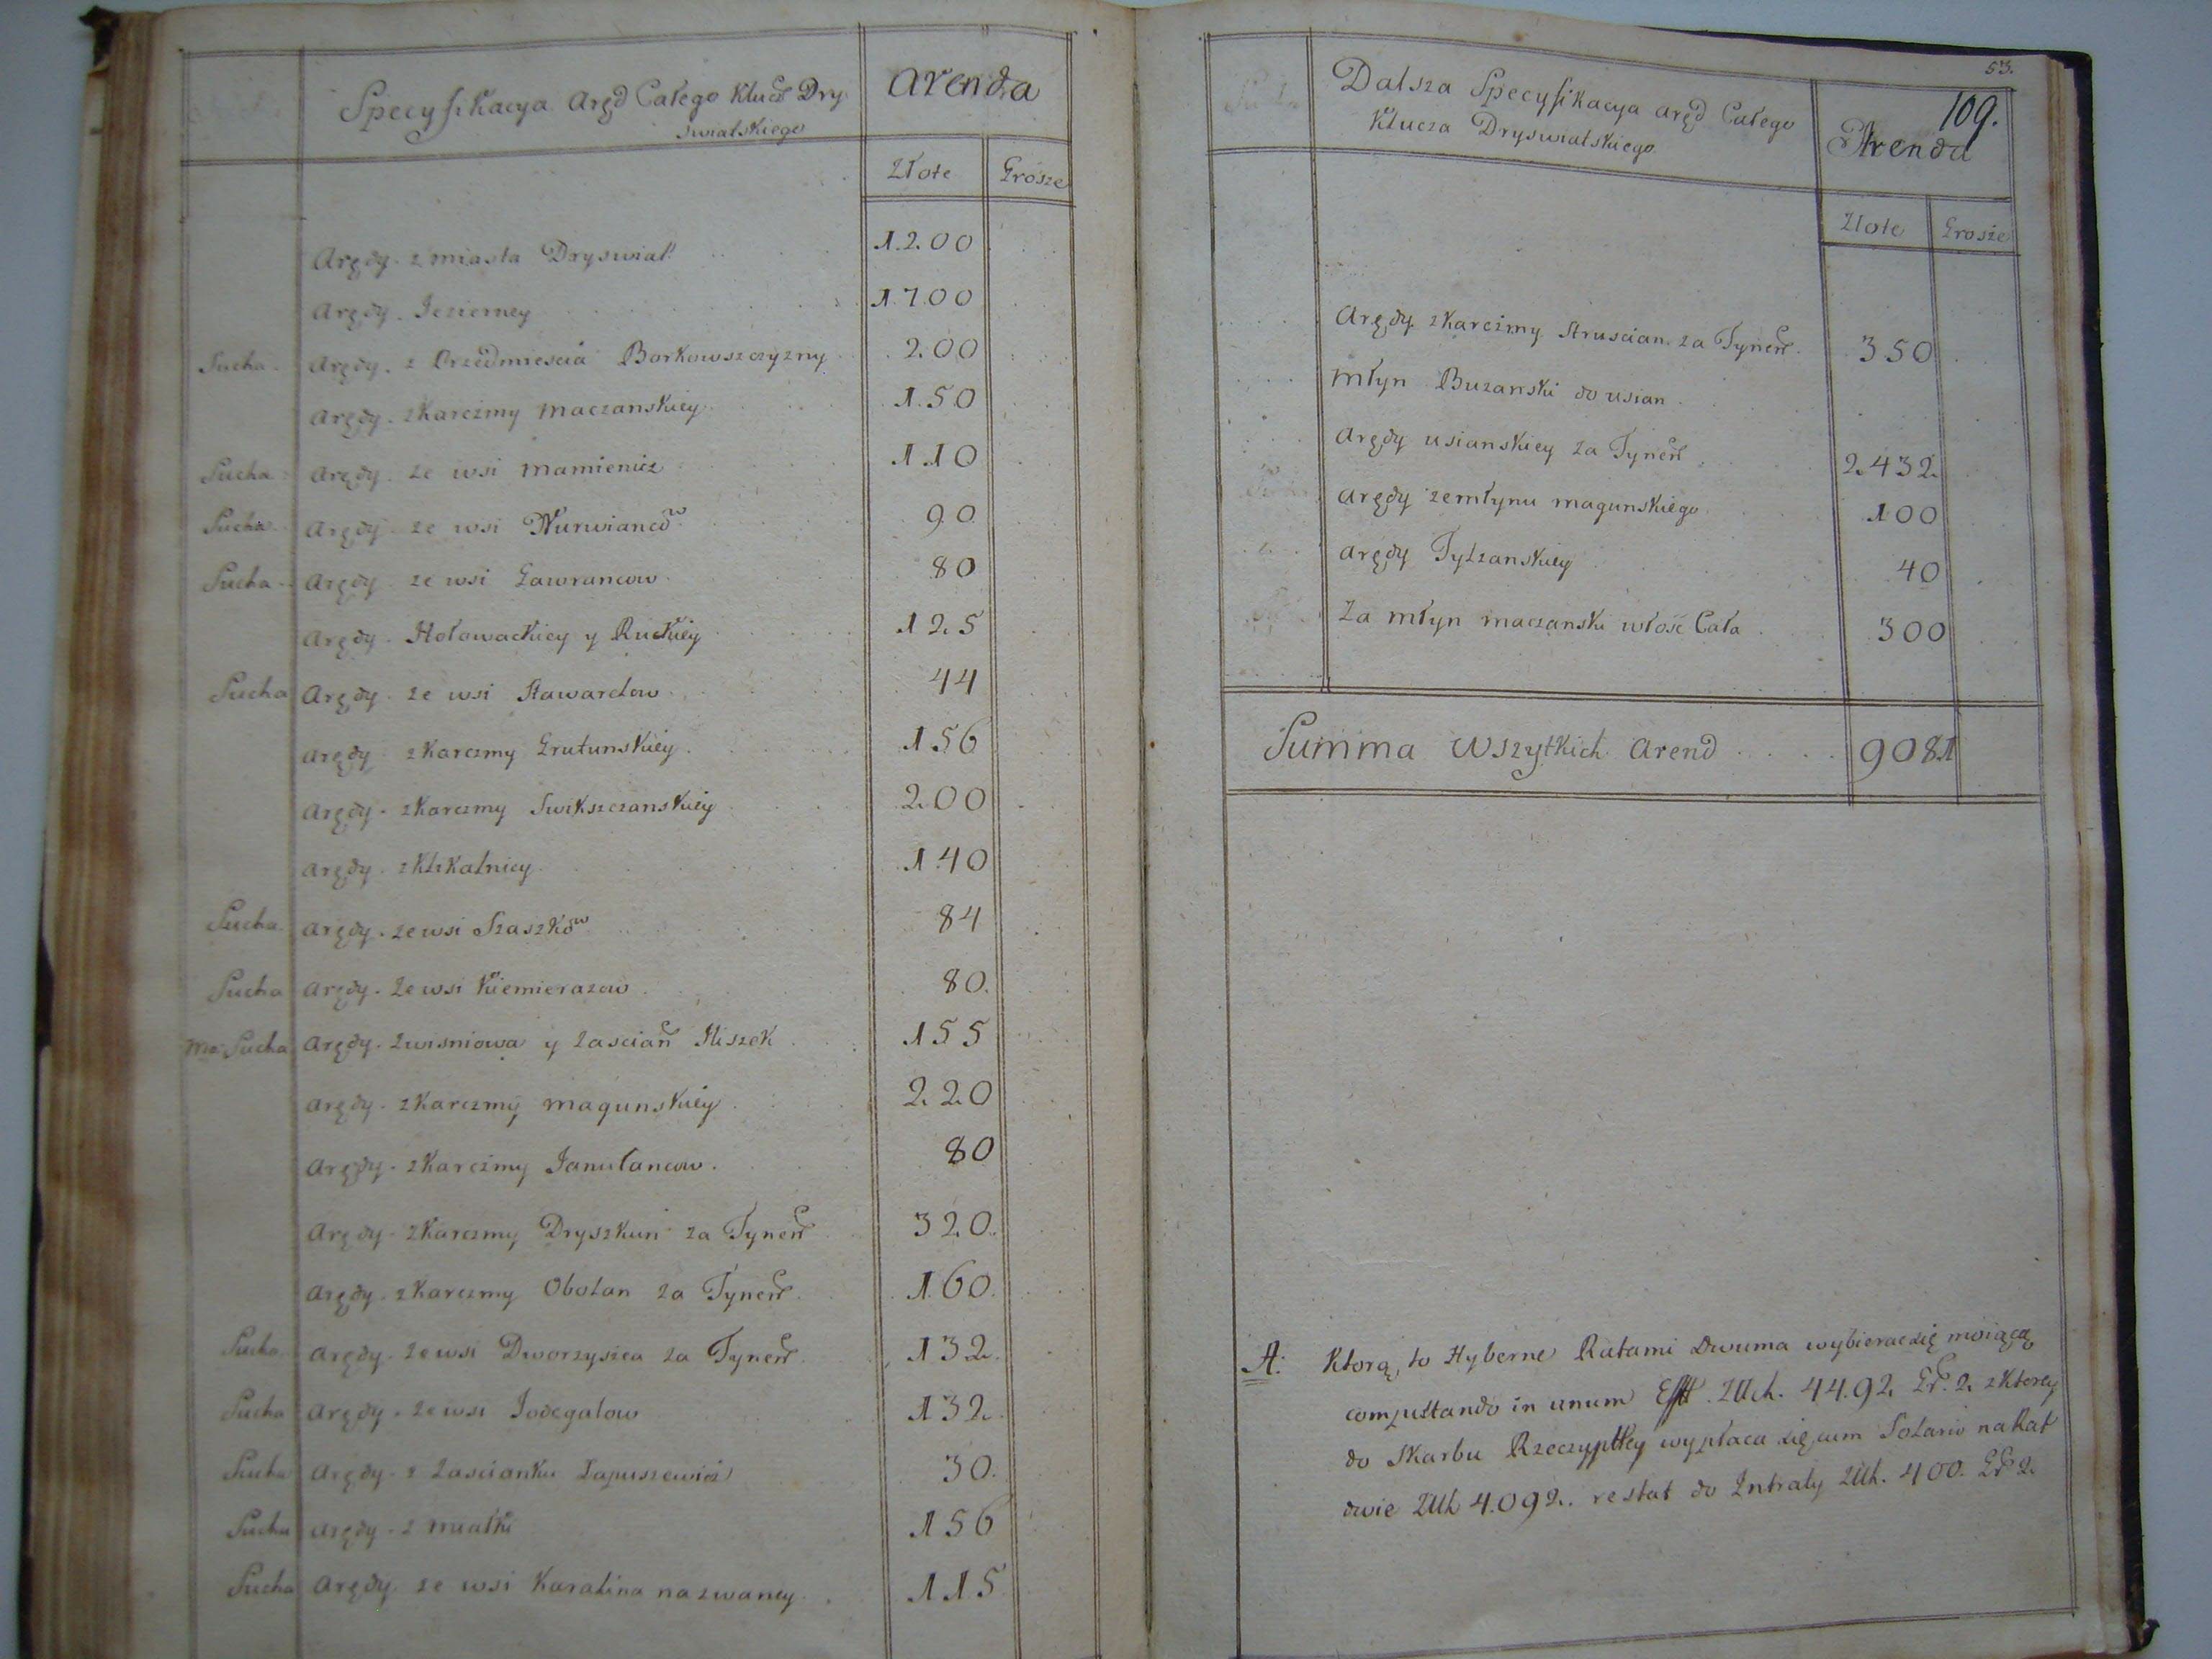 Specyfikacya Aręd Całego Klucz Dry
swiatskiego
Arenda
Złote Grosze
Arędy z miasta Dryswiat 1200
Arędy Jezierney 1700
Sucha Arędy z Przedmiescia Borkowszczyzny 200
Arędy z Karczmy Maczanskiey 150
Sucha Arędy ze wsi Mamienicz 110
Sucha Arędy ze wsi Wurwiancow 90
Sucha Arędy ze wsi Gawrancow 80
Arędy Hołowackiey y Ruckiey 125
Sucha Arędy ze wsi Stawarelow 44
Arędy z Karczmy Grutunskiey 156
Arędy z Karczmy Swikszczanskiey 200
Arędy 140
Sucha Arędy ze wsi Szaszkow 84
Sucha Arędy ze wsi Kiemierazow 80
Sucha Arędy z Wisniowa y Zascian Hiszek 155
Arędy z Karczmy Magunskiey 220
Arędy z Karczmy Janulancow 80
Arędy z Karczmy Dryszkun za Tynerr 320
Arędy z Karczmy Obolan za Tynerr 160
Sucha Arędy ze wsi Dworzyszcza za Tynerr 132
Sucha Arędy ze wsi Jodegalow 132
Sucha Arędy z Zascianku Łapuszewicz 30
Sucha Arędy z 156
Sucha Arędy ze wsi Karalina nazwaney 115
53.
109.
Dalsza Specyfikacya Aręd Całego
Klucza Dryswiatskiego
Arenda
Złote Grosze
Arędy z Karczmy Struscian za Tynerr 350
Młyn Buzanski do Usian
Arędy Usianskiey za Tynerr 2432
Arędy ze młynu Magunskiego 100
Arędy Tylzanskiey 40
Za młyn Maczanski włość Cała 300
Summa Wszytkich Arend 9081
A: Ktorą to Hyberne Ratami Dwuma wybierac się maiącą
computando in unum Złłch. 4492 Gr. 2. z Ktorey
do Skarbu Rzeczyptley wypłaca się cum Solario na Rat
dwie Złłch 4.092. restat do Intraty Złłch. 400. Gr 2.